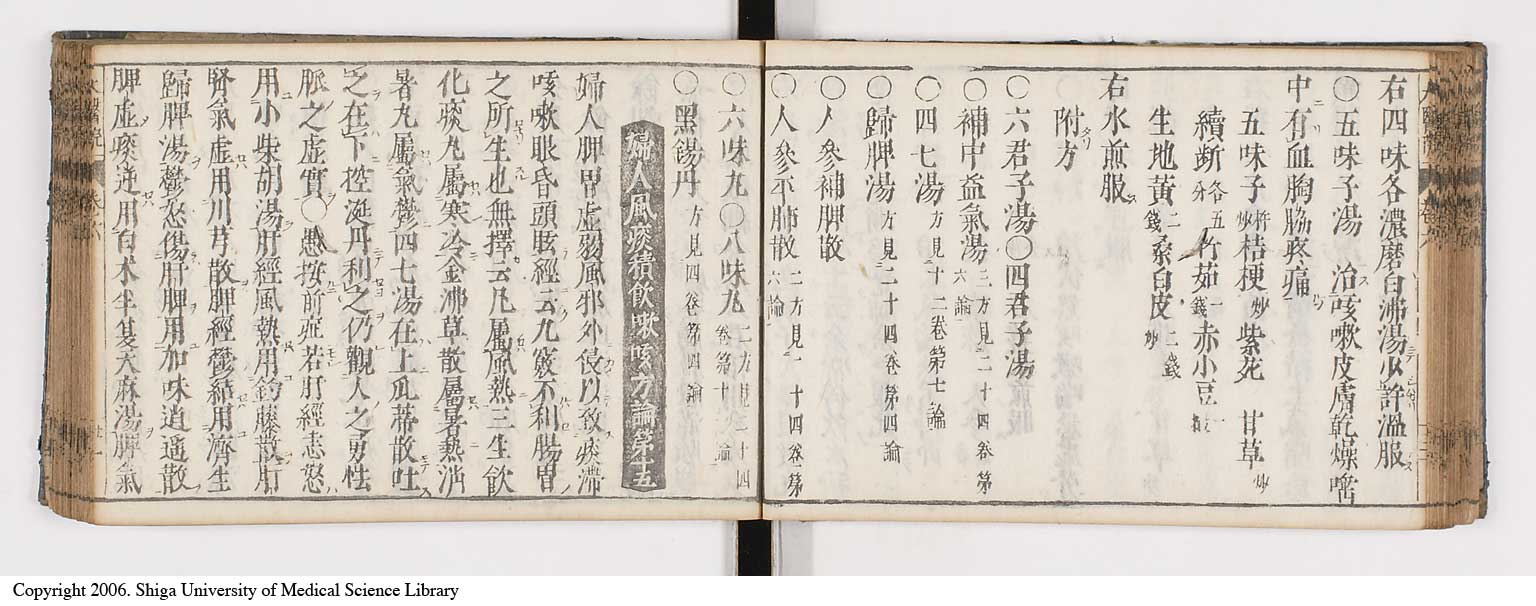 右四味各濃磨白沸湯少許溫服
〇五味子湯　治咳嗽皮膚乾燥唾
中有血胸膈疼痛
五味子炒桔梗炒紫菀　甘草炒
續斷各五分竹茹一錢赤小豆一
生地黃二錢桑白皮炒二錢
右水煎服
附方
〇六君子湯〇四君子湯
〇補中益氣湯三方見二十四卷第六論
〇四七湯方見十二卷第七論
〇歸脾湯方見二十四卷第四論
〇人參補脾散
〇人參平肺散二方見二十四卷第六論
〇六味丸〇八味丸二方見二十四卷第十論
〇黑錫丹方見四卷第四論
婦人風痰積飲嗽咳方論第十五
婦人脾胃虛弱風邪外侵以致痰滯
咳嗽眼昏頭眩經云九竅不利腸胃
之所生也無擇云凡屬風熱三生飲
化痰丸屬寒冷金沸草散屬暑熱消
暑丸屬氣鬱四七湯在上瓜蒂散吐
之在下控涎丹利之仍觀人之勇怯
脈之虛實〇愚按前症若肝經恚怒
用小柴胡湯肝經風熱用鈎藤散肝
腎氣虛用川芎散脾經鬱結用濟生
歸脾湯鬱怒傷肝脾用加味逍遥散
脾虛痰逆用白朮半夏天麻湯脾氣
Copyright 2006. Shiga University of Medical Science Library